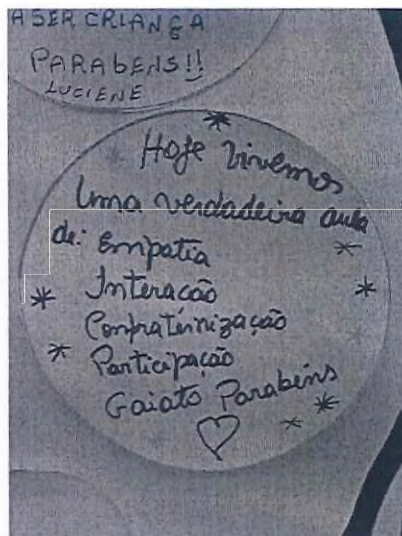 A SER CRIANÇA
PARABENS!!
LUCIENE
Hoje vivemos
Uma verdadeira aula
de: Empatia
Interacão
Confraternização
Participação
Gaiato Parabéns